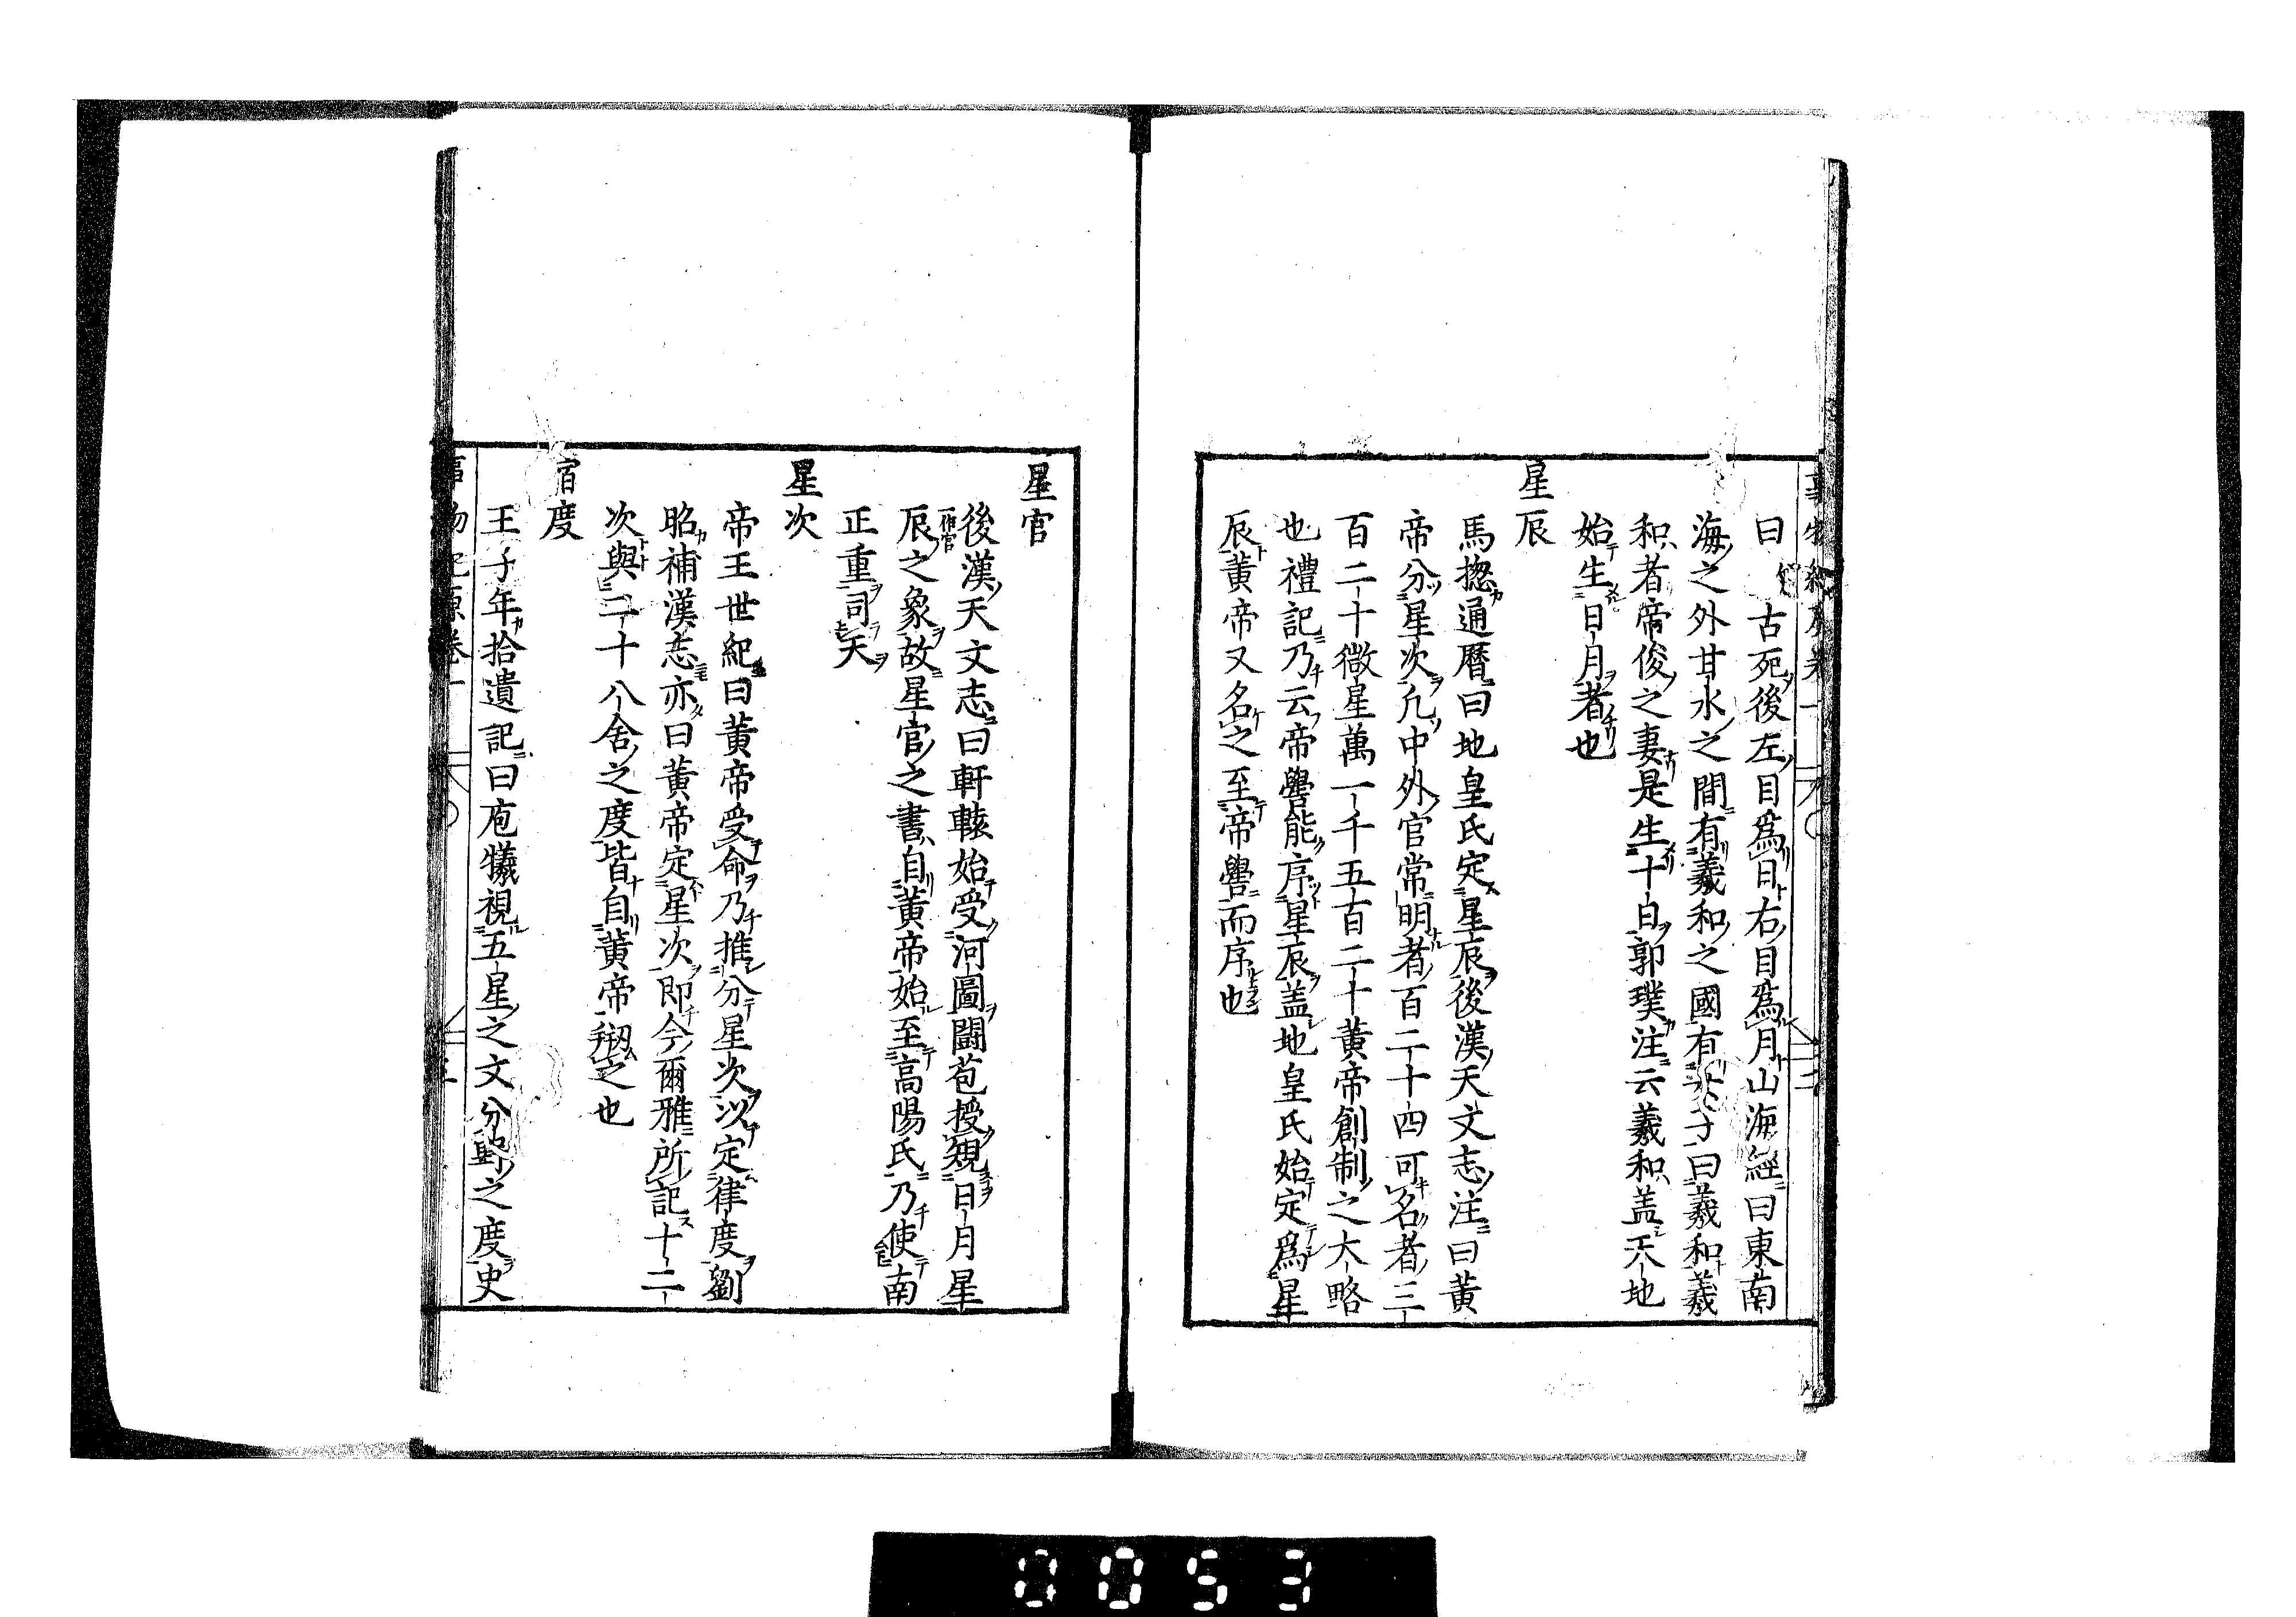 曰 古死後左目爲日右目爲月山海經曰東南
海之外甘水之間有羲和之國有女子曰羲和羲
和者帝俊之妻是生十日郭璞注云羲和盖天地
始生日月者也
星辰
馬揔通曆曰地皇氏定星辰後漢天文志注曰黄
帝分星次凢中外官常明者百二十四可名者三
百二十微星萬一千五百二十黄帝創制之大略
也禮記乃云帝嚳能序星辰盖地皇氏始定爲星
辰黄帝又名之至帝嚳而序也
星官
後漢天文志曰軒轅始受河圖鬪苞授規日月星
辰之象故星官之書自黄帝始至高陽氏乃使南
正重司天
星次
帝王世紀曰黄帝受命乃推分星次以定律度劉
昭補漢志亦曰黄帝定星次即今爾雅所記十二
次與二十八舍之度皆自黄帝剏之也
宿度
王子年拾遺記曰庖犧視五星之文分野之度史
0053